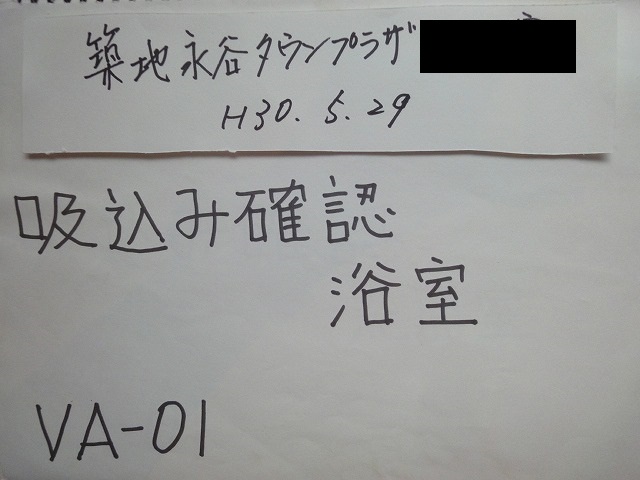 築地永谷タウンプラザ
H30.5.29
吸込み確認
浴室
VA-01